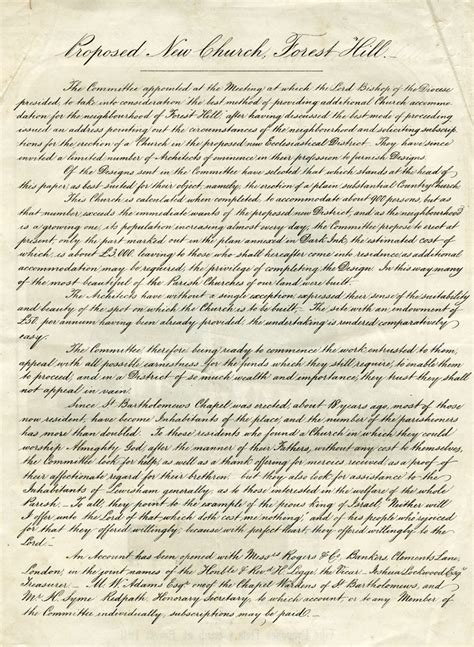 Proposed New Church, Forest Hill.
The Committee appointed at the Meeting at which the Lord Bishop of the Diocese
presided, to take into consideration the best method of providing additional Church accommo-
dation for the neighbourhood of Forest Hill, after having discussed the best mode of proceeding
issued an address pointing out the circumstances of the neighbourhood and soliciting subscrip-
tions for the erection of a Church in the proposed new Ecclesiastical District. They have since
invited a limited number of Architects of eminence in their profession to furnish Designs.
Of the Designs sent in the Committee have selected that which stands at the head of
this paper, as best suited for their object, namely, the erection of a plain substantial Country Church
This Church is calculated when completed, to accommodate about 900 persons, but as
that number exceeds the immediate wants of the proposed new District, and as the neighbourhood
is a growing one, its population increasing almost every day, the Committee propose to erect at
present, only the part marked out in the plan annexed in Dark Ink, the estimated cost of
which, is about £3,000, leaving to those who shall hereafter come into residence, as additional
accommodation may be required, the privilege of completing the Design. In this way many
of the most beautiful of the Parish Churches of our land were built.
The Architects have without a single exception expressed their sense of the suitability
and beauty of the spot on which the Church is to be built. The site with an endowment of
£50 per annum having been already provided, the undertaking is rendered comparatively
easy.
The Committee therefore being ready to commence the work entrusted to them,
appeal with all possible earnestness for the funds which they still require, to enable them
to proceed, and in a District of so much wealth and importance, they trust they shall
not appeal in vain.
Since St Bartholomews Chapel was erected, about 18 years ago, most of those
now resident, have become Inhabitants of the place, and the number of the parishioners
has more than doubled. To those residents who found a Church in which they could
worship Almighty God, after the manner of their Fathers, without any cost to themselves,
the Committee look for help, as well as a thank offering for mercies received, as a proof of
their affectionate regard for their brethren but they also look for assistance to the
Inhabitants of Lewisham generally, as to those interested in the welfare of the whole
Parish. To all, they point to the example of the pious King of Israel, Neither will
I offer unto the Lord of that which doth cost me nothing, and of his people who rejoiced
for that they offered willingly, because with perfect heart, they offered willingly to the
Lord.
An Account has been opened with Messrs Rogers & Co. Bankers, Clements Lane,
London, in the joint names of the Honble & Revd H. Legge, the Vicar, Joshua Lockwood Esqr
Treasurer _ M. W. Adams Esqr one of the Chapel Wardens of St Bartholomews, and
Mr H. Syme Redpath, Honorary Secretary, to which account, or to any Member of
the Committee individually, subscriptions may be paid.